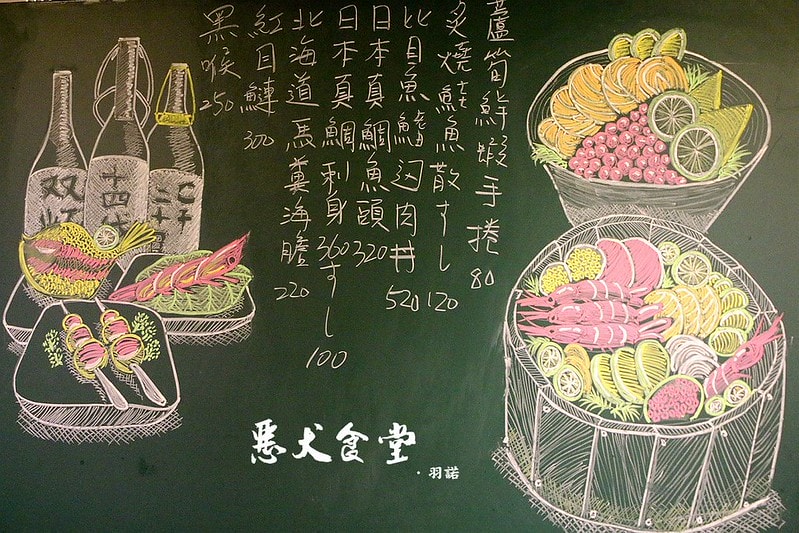 蘆筍鮮蝦手捲 80
炙燒鮭魚散すし 120
比目魚鰭边肉丼 520
日本真鯛魚頭 320
日本真鯛刺身 360 すし 100
北海道馬糞海膽 220
紅目鰱 300
黑喉 250
双虹
十四代
悪犬食堂
·羽諾